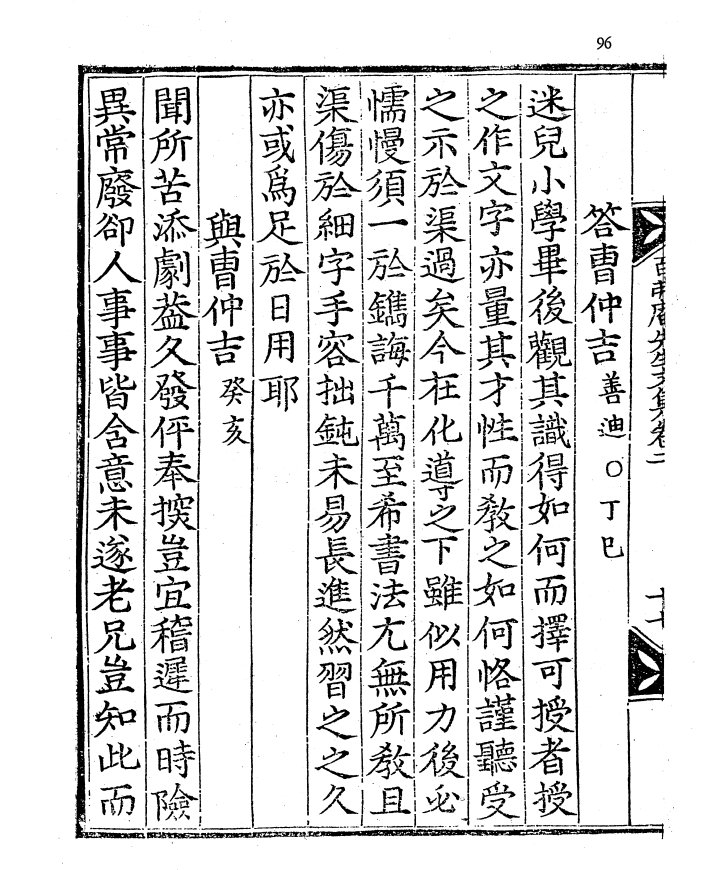 96
先生文集卷二
答曺仲吉 善迪 ○ 丁巳
迷兒小學畢後觀其識得如何而擇可授者授
之作文字亦量其才性而敎之如何恪謹聽受
之示於渠過矣今在化導之下雖似用力後必
懦慢須一於鐫誨千萬至希書法尤無所敎且
渠傷於細字手容拙鈍未易長進然習之之久
亦或爲足於日用耶
與曺仲吉 癸亥
聞所苦添劇葢久發伻奉揬豈宜稽遲而時險
異常廢卻人事事皆含意未遂老兄豈知此而